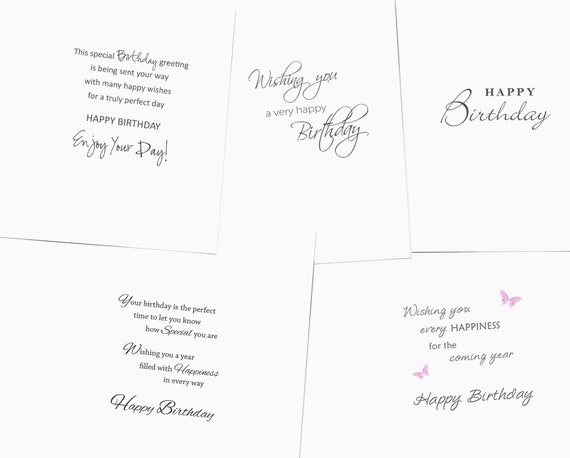 This special Birthday greeting
is being sent your way
with many happy wishes
for a truly perfect day
HAPPY BIRTHDAY
Enjoy Your Day!
Wishing you
a very happy
Birthday
HAPPY
Birthday
Your birthday is the perfect
time to let you know
how Special you are
Wishing you a year
filled with Happiness
in every way
Happy Birthday
Wishing you
every HAPPINESS
for the
coming year
Happy Birthday